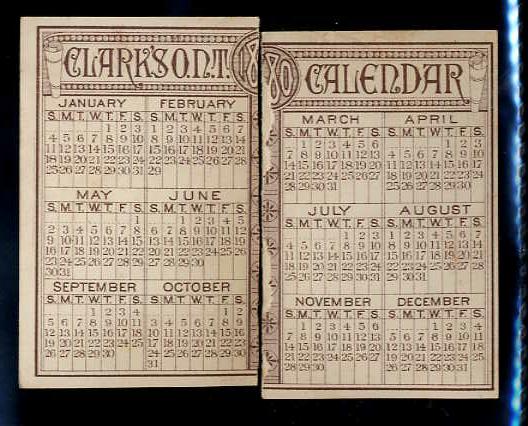 CLARK'S O.N.T. 1880 CALENDAR
JANUARY FEBRUARY
S. M. T. W. T. F. S. S. M. T. W. T. F. S.
1 2 3 1 2 3 4 5 6 7
4 5 6 7 8 9 10 8 9 10 11 12 13 14
11 12 13 14 15 16 17 15 16 17 18 19 20 21
18 19 20 21 22 23 24 22 23 24 25 26 27 28
25 26 27 28 29 30 31 29
MARCH APRIL
S. M. T. W. T. F. S. S. M. T. W. T. F. S.
1 2 3 4 5 6 1 2 3
7 8 9 10 11 12 13 4 5 6 7 8 9 10
14 15 16 17 18 19 20 11 12 13 14 15 16 17
21 22 23 24 25 26 27 18 19 20 21 22 23 24
28 29 30 31 25 26 27 28 29 30
MAY JUNE
S. M. T. W. T. F. S. S. M. T. W. T. F. S.
1 1 2 3 4 5
2 3 4 5 6 7 8 6 7 8 9 10 11 12
9 10 11 12 13 14 15 13 14 15 16 17 18 19
16 17 18 19 20 21 22 20 21 22 23 24 25 26
23 24 25 26 27 28 29 27 28 29 30
30 31
JULY AUGUST
S. M. T. W. T. F. S. S. M. T. W. T. F. S.
1 2 3 1 2 3 4 5 6 7
4 5 6 7 8 9 10 8 9 10 11 12 13 14
11 12 13 14 15 16 17 15 16 17 18 19 20 21
18 19 20 21 22 23 24 22 23 24 25 26 27 28
25 26 27 28 29 30 31 29 30 31
SEPTEMBER OCTOBER
S. M. T. W. T. F. S. S. M. T. W. T. F. S.
1 2 3 4 1 2
5 6 7 8 9 10 11 3 4 5 6 7 8 9
12 13 14 15 16 17 18 10 11 12 13 14 15 16
19 20 21 22 23 24 25 17 18 19 20 21 22 23
26 27 28 29 30 24 25 26 27 28 29 30
31
NOVEMBER DECEMBER
S. M. T. W. T. F. S. S. M. T. W. T. F. S.
1 2 3 4 5 6 1 2 3 4
7 8 9 10 11 12 13 5 6 7 8 9 10 11
14 15 16 17 18 19 20 12 13 14 15 16 17 18
21 22 23 24 25 26 27 19 20 21 22 23 24 25
28 29 30 26 27 28 29 30 31